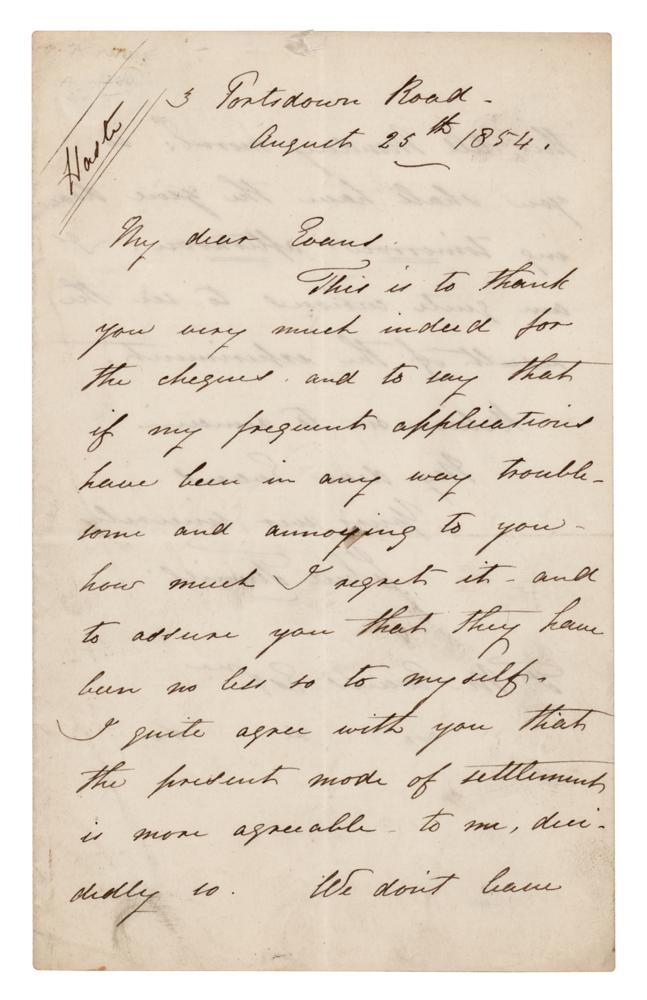 Haste
3 Portsdown Road -
August 25th 1854.
My dear Evans.
This is to thank
you very much indeed for
the cheques. and to say that
if my frequent applications
have been in any way trouble-
some and annoying to you -
how much I regret it - and
to assure you that they have
been no less so to myself -
I quite agree with you that
the present mode of settlement
is more agreeable - to me, deci-
dedly so. We don't leave